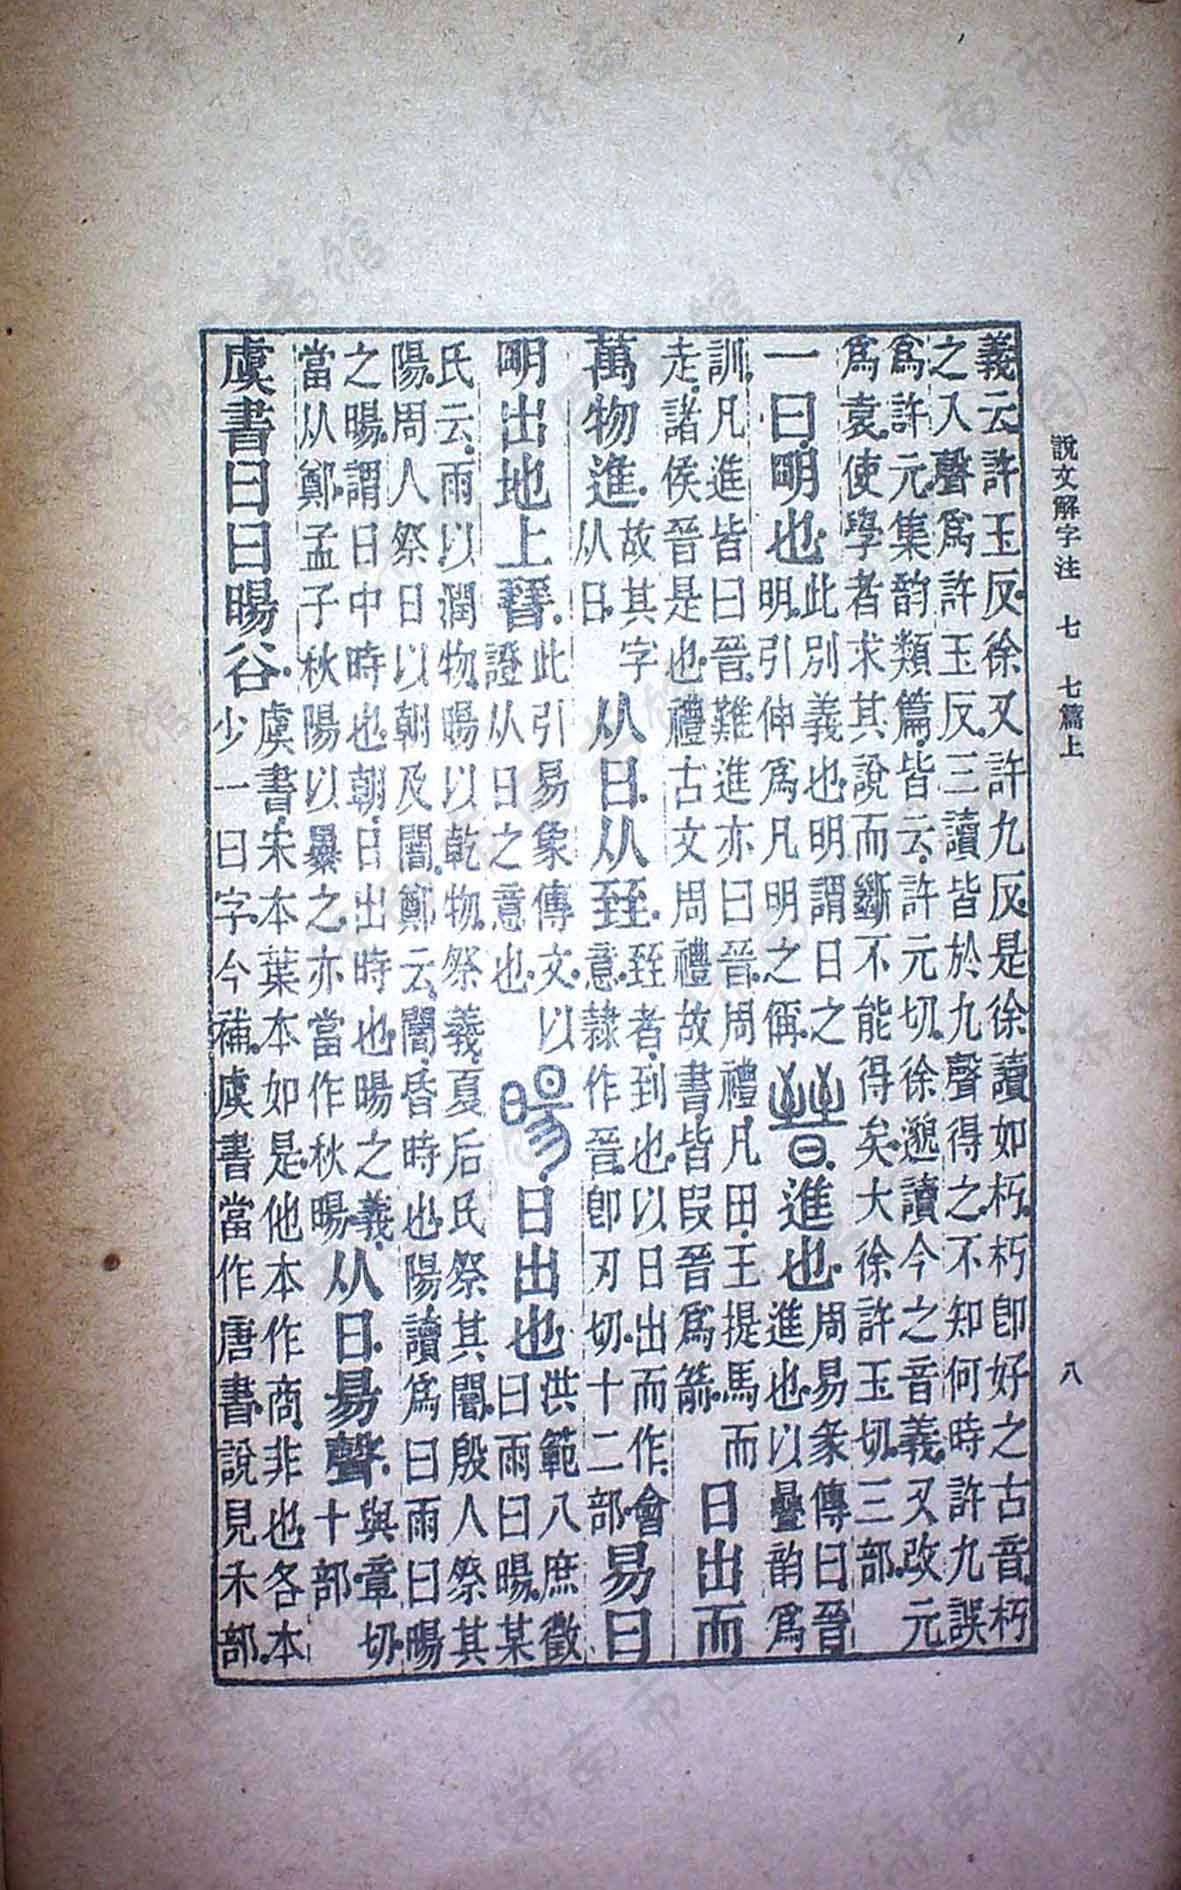 說文解字注 七 七篇上 八
義云許玉反徐又許九反是徐讀如朽朽卽好之古音朽
之入聲爲許玉反三讀皆於九聲得之不知何時許九誤
爲許元集韵類篇皆云許元切徐邈讀今之音義又改元
爲袁使學者求其說而斷不能得矣大徐許玉切三部
一曰明也此別義也明謂日之明引伸爲凡明之偁㬜進也周易彖傳曰晉進也以疊韵爲
訓凡進皆曰晉難進亦曰晉周禮凡田王提馬而走諸侯晉是也禮古文周禮故書皆叚晉爲箭日出而
萬物進故其字从日从日从臸臸者到也以日出而作會意隸作晉卽刃切十二部易曰
明出地上㬜此引易象傳文以證从日之意也暘日出也洪範八庶徵曰雨曰暘某
氏云雨以潤物暘以乾物祭義夏后氏祭其闇殷人祭其
陽周人祭日以朝及闇鄭云闇昏時也陽讀爲曰雨曰暘
之暘謂日中時也朝日出時也暘之義當从鄭孟子秋陽以暴之亦當作秋暘从日昜聲與章切十部
虞書曰曰暘谷虞書宋本葉本如是他本作商非也各本少一曰字今補虞書當作唐書說見禾部
济南市图书馆